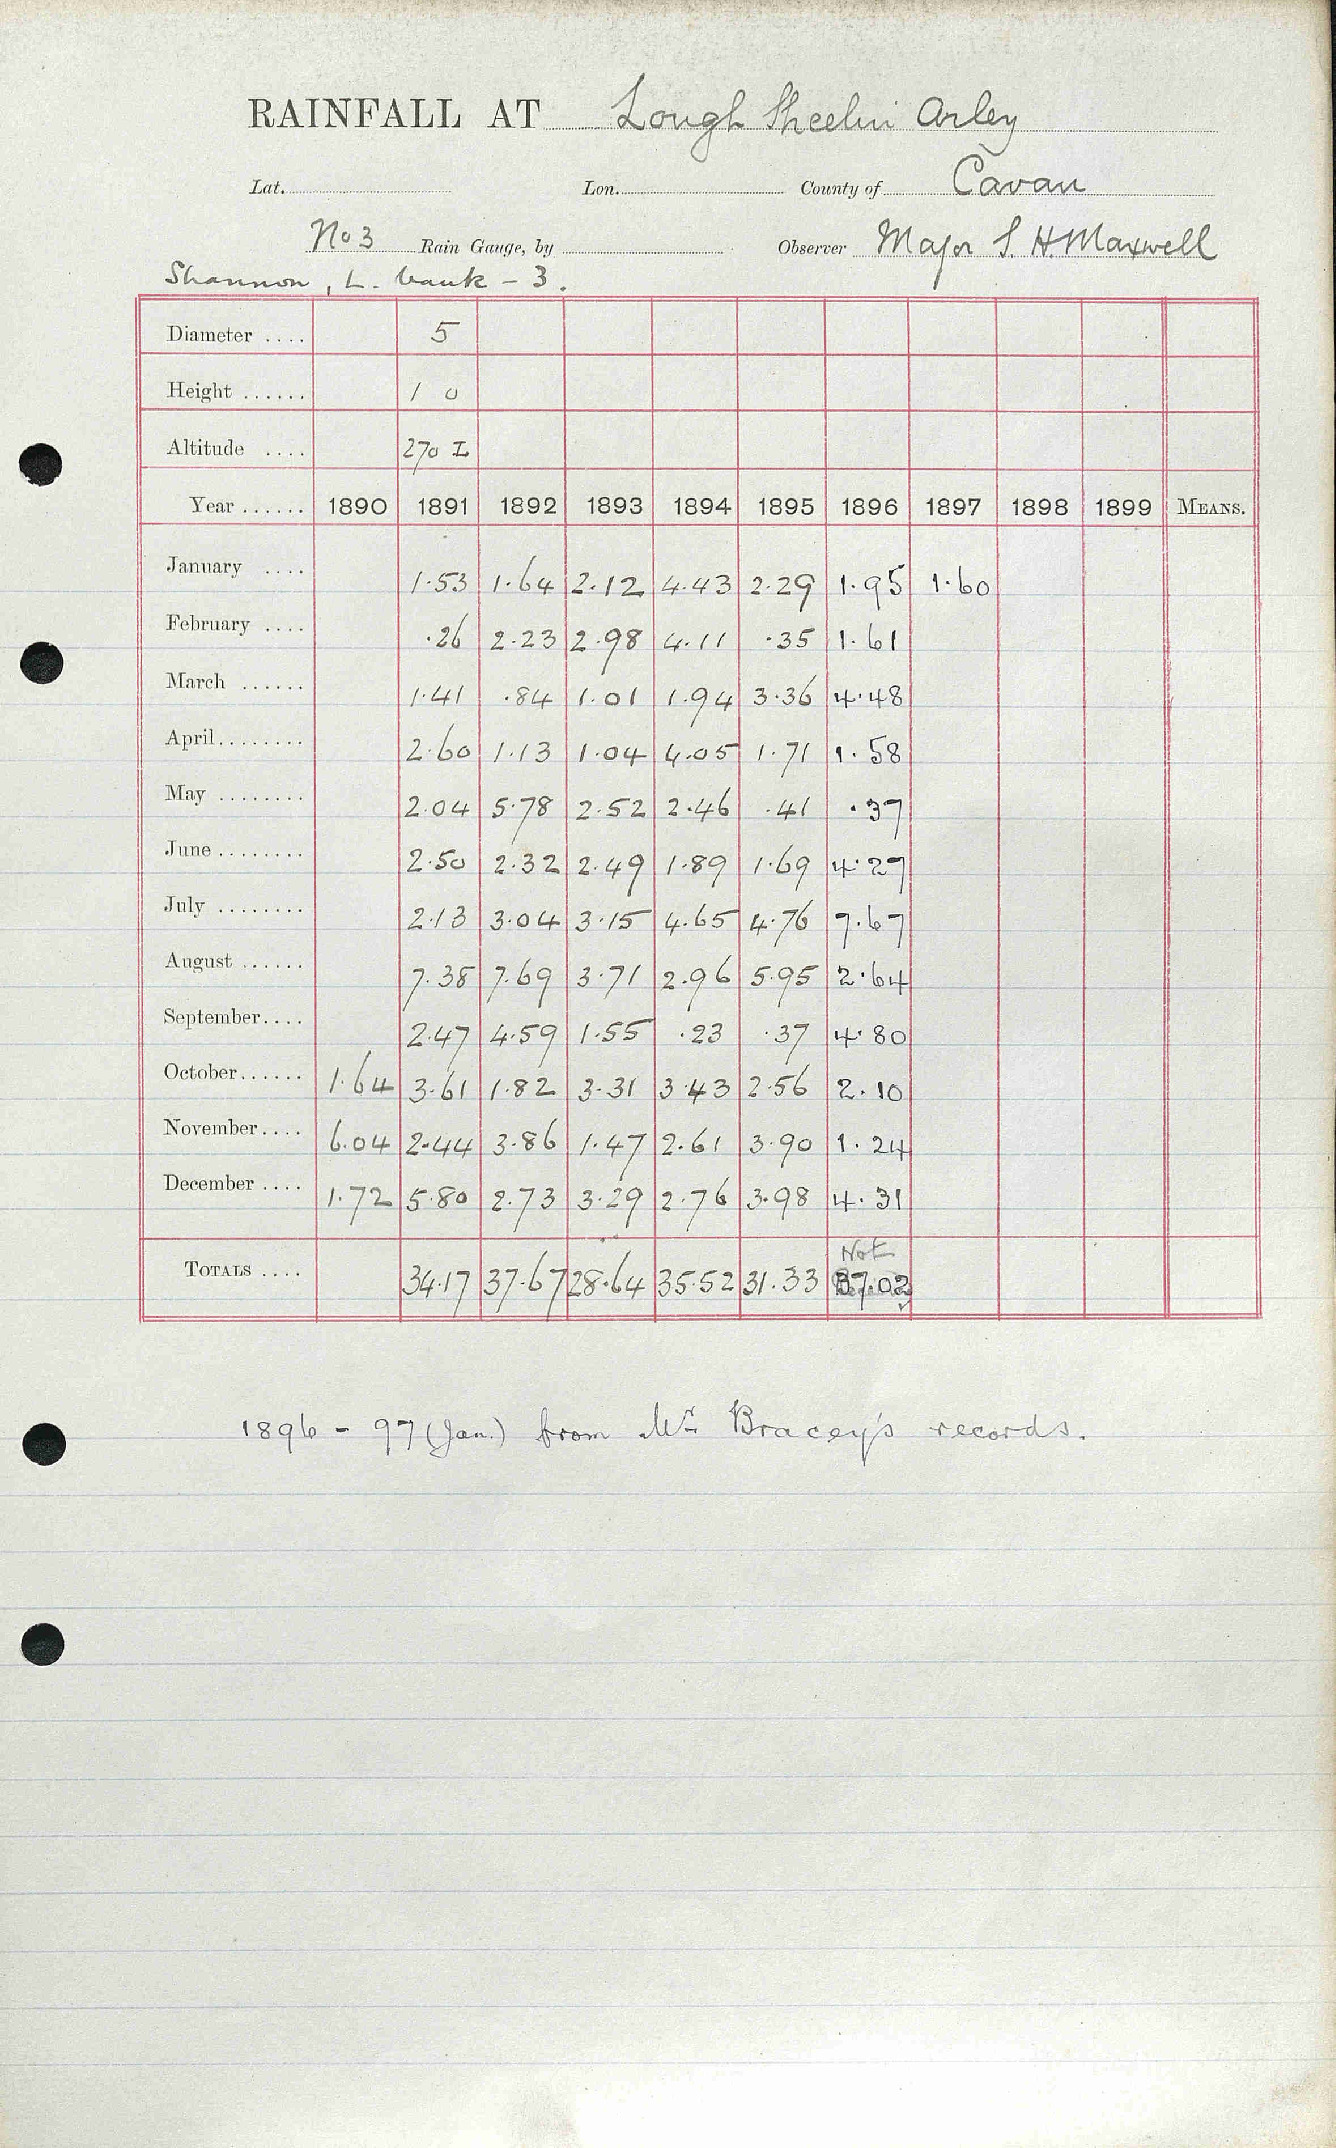 RAINFALL AT Lough Sheelin Arley
Lat. Lon. County of Cavan
No 3 Rain Gauge, by Observer Major S. H. Maxwell
Shannon, L. bank - 3.
Diameter .... 5
Height ...... 1 0
Altitude .... 270 I
Year ...... 1890 1891 1892 1893 1894 1895 1896 1897 1898 1899 MEANS.
January .... 1.53 1.64 2.12 4.43 2.29 1.95 1.60
February .... .26 2.23 2.98 4.11 .35 1.61
March ...... 1.41 .84 1.01 1.94 3.36 4.48
April........ 2.60 1.13 1.04 4.05 1.71 1.58
May ........ 2.04 5.78 2.52 2.46 .41 .37
June ........ 2.50 2.32 2.49 1.89 1.69 4.27
July ........ 2.13 3.04 3.15 4.65 4.76 7.67
August ...... 7.38 7.69 3.71 2.96 5.95 2.64
September.... 2.47 4.59 1.55 .23 .37 4.80
October...... 1.64 3.61 1.82 3.31 3.43 2.56 2.10
November.... 6.04 2.44 3.86 1.47 2.61 3.90 1.24
December .... 1.72 5.80 2.73 3.29 2.76 3.98 4.31
Not
TOTALS .... 34.17 37.67 28.64 35.52 31.33 37.02
1896 - 97 (Jan.) from Mr. Bracey's records.